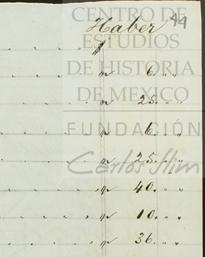 Haber 49
CENTRO DE
ESTUDIOS
DE HISTORIA
DE MEXICO
FUNDACIÓN
Carlos Slim
$
" 6. " "
" 25. " "
" 6. " "
" 25. " "
" 40. " "
" 10. " "
" 36. " "